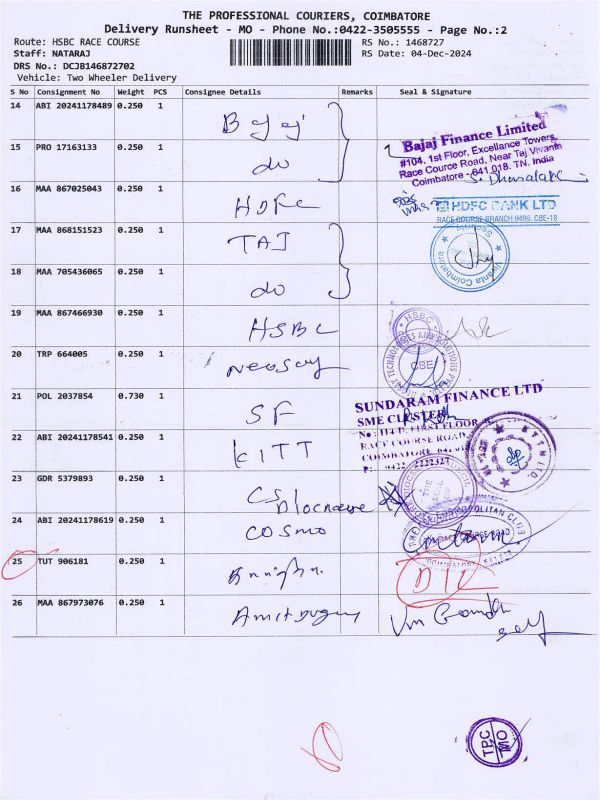 THE PROFESSIONAL COURIERS, COIMBATORE
Delivery Runsheet - MO - Phone No.:0422-3505555 - Page No.:2
Route: HSBC RACE COURSE
RS No.: 1468727
Staff: NATARAJ
RS Date: 04-Dec-2024
DRS No.: DCJB146872702
Vehicle: Two Wheeler Delivery
S No Consignment No Weight PCS Consignee Details Remarks Seal & Signature
14 ABI 20241178489 0.250 1 Bajaj
Bajaj Finance Limited
#104, 1st Floor, Excellance Towers,
Race Cource Road, Near Taj Vivanta
Coimbatore - 641 018. TN. India
15 PRO 17163133 0.250 1 do
16 MAA 867025043 0.250 1 HDFC
HDFC BANK LTD
RACE COURSE BRANCH 9496, CBE-18
17 MAA 868151523 0.250 1 TAJ
Vivanta Coimbatore
Security
18 MAA 705436065 0.250 1 do
19 MAA 867466930 0.250 1 HSBC
HSBC
20 TRP 664005 0.250 1
CBE
21 POL 2037854 0.730 1 SF
SUNDARAM FINANCE LTD
SME CLUSTER
FIRST FLOOR
RACE COURSE ROAD
COIMBATORE
22 ABI 20241178541 0.250 1 KITT
23 GDR 5379893 0.250 1 CS
24 ABI 20241178619 0.250 1 COSMO
COSMOPOLITAN CLUB
RACE COURSE ROAD
25 TUT 906181 0.250 1
26 MAA 867973076 0.250 1
self
TPC
MO